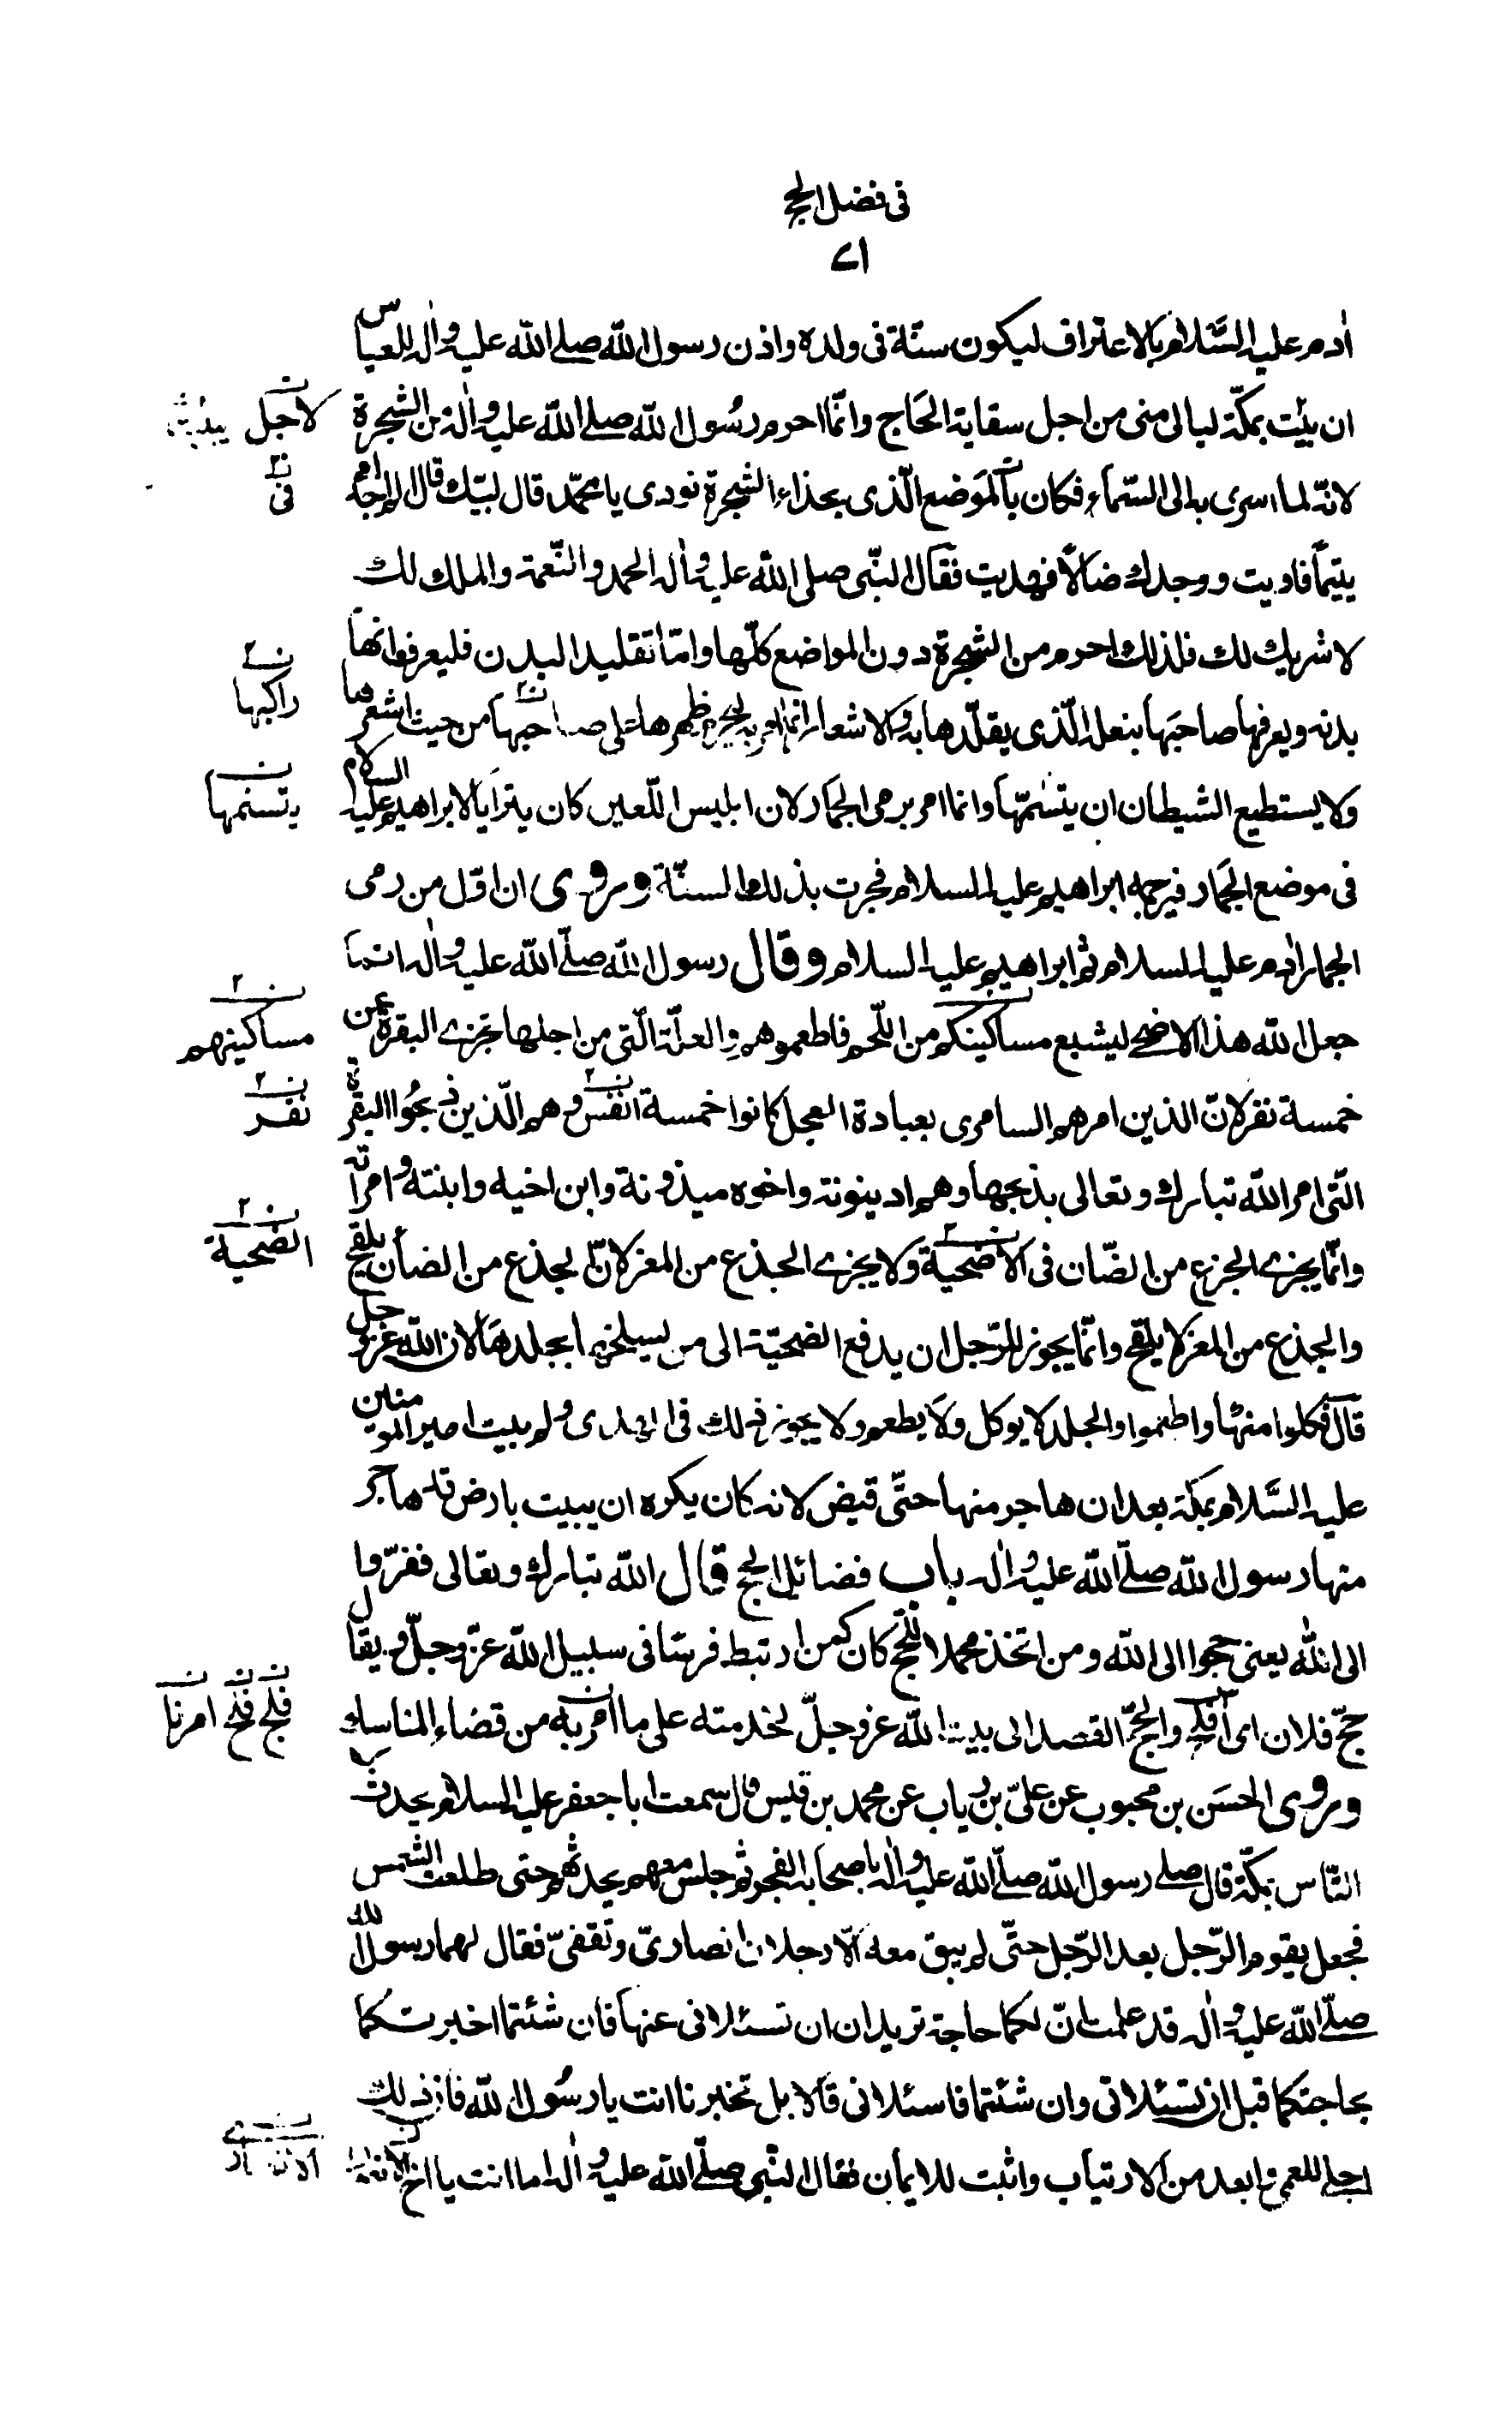 في فضل الحج
٧١
اٰدم عليه السَّلام بالاعتراف ليكون سنّة فى ولده واذن رسول اللّه صلى اللّه عليه واٰله للعباس
ان يبيت بمكّة ليالى منى من اجل سقاية الحَاج وانّما احرم رسُول اللّه صلى اللّه عليه واٰله من الشجرة
لاجل
لانّه لما اسرى به الى السّماء فكان بالموَضع الّذى بحذاء الشجرة نودى يا محمّد قال لبّيك قال الم اجدك
فى
يتيماً فاويت ووجدتك ضالاً فهديت فقال النّبى صلى اللّه عليه واٰله الحمد والنّعمة والملك لك
لا شريك لك فلذلك احرم من الشجرة دون المواضع كلّها وامّا تقليد البدن فليعرف انها
بدنه ويعرفها صاحبَها بنعله الّذى يقلّدها به والاشعار انما امر به ليحرم ظهرها على صاحبها من حيث اشعرها
راكبها
ولا يستطيع الشيطان ان يتسّمها وانما امر برمى الجمار لان ابليس اللّعين كان يترايَا لابراهيم عليه السلام
يتسنمها
فى موضع الجمار فيرجمه ابراهيم عليه السلام فجرت بذلك السنّة وروى ان اوّل من رمى
الجمار اٰدم عليه السلام ثم ابراهيم عليه السلام وقال رسول اللّه صلّى اللّه عليه واٰله انما
جعل اللّه هذا الاضحى ليشبع مساكينكم من اللّحم فاطعموهم والعلّة الّتى من اجلها تجزى البقرة عن
مساكينهم
خمسة نفر لانّ الذين امرهم السامرى بعبادة العجل كانوا خمسة انفس وهم الّذين ذبحُوا البقرة
نفر
الّتى امر اللّه تبارك وتعالى بذبحها وهم ادينونة واخوه ميذونة وابن اخيه وابنته وامراته
وانّما يجزى الجزع من الضّان فى الاضحيّة ولا يجزى الجذع من المعز لانّ الجذع من الضأن يلقح
الضحية
والجذع من المعز لا يلقح وانّما يجوز للرّجل ان يدفع الضحيّة الى من يسلخها بجلدها لان اللّه عزوجل
قال فكلوا منها واطعموا والجلد لا يوكل ولا يطعم ولا يجوز ذلك فى الهدى ولم يبيت امير المومنين
عليه السَّلام بمكّة بعد ان هاجر منها حتّى قبض لانه كان يكره ان يبيت بارض قد هاجر
منها رسول اللّه صلّى اللّه عليه واٰله باب فضائل الحج قال اللّه تبارك وتعالى ففرّوا
الى اللّٰه يعنى حجوا الى اللّه ومن اتخذ محملا للحج كان كمن ارتبط فرسًا فى سبيل اللّه عزّوجلّ ويقال
حجّ فلان اى افلح والحجّ القصد الى بيت اللّه عزوجلّ لخدمته على ما امر به من قضاء المناسك
فلج فلح امرنا
وروى الحسَن بن محبوب عن علىّ بن رياب عن محمد بن قيس قال سمعت ابا جعفر عليه السلام يحدث
النّاس بمكّة قال صلى رسول اللّه صلّى اللّه عليه واٰله باصحابه الفجر ثم جلس معهم يحدثهم حتى طلعت الشمس
فجعل يقوم الرّجل بعد الرّجل حتّى لم يبق معه الّا رجلان انصارىّ وثقفىّ فقال لهما رسول اللّه
صلّى اللّه عليه واٰله قد علمت انّ لكما حاجة تريدان ان تسئلانى عنها فان شئتما اخبرتكما
بحاجتكما قبل ان تسئلانى وان شئتما فاسئلانى قالا بل تخبرنا انت يا رسُول اللّه فان ذلك
اجلى للعمى وابعد من الارتياب واثبت للايمان فقال النّبى صلّى اللّه عليه واٰله اما انت يا اخ